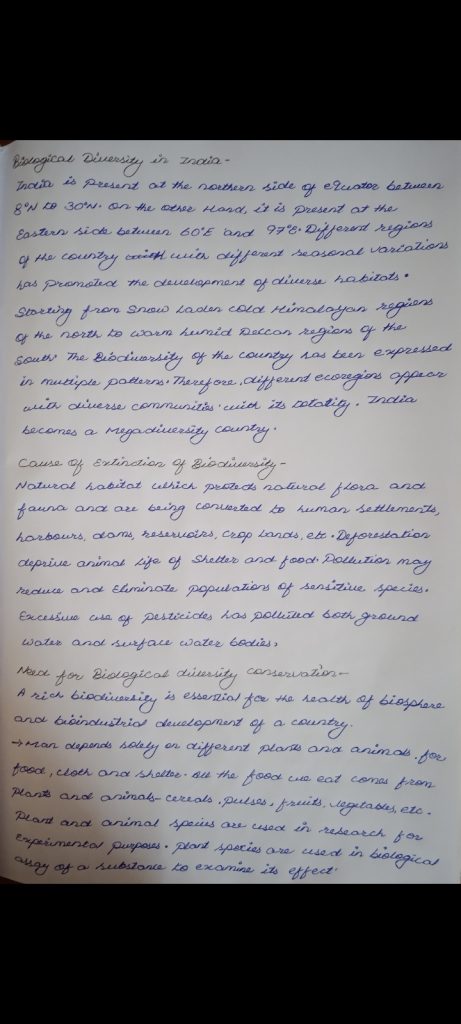 Biological Diversity in India -
India is present at the northern side of equator between
8°N to 30°N. On the other Hand, it is present at the
Eastern side between 60°E and 97°E. Different regions
of the country with different seasonal variations
has promoted the development of diverse habitats.
Starting from Snow Laden cold Himalayan regions
of the north to warm humid Deccan regions of the
South. The Biodiversity of the country has been expressed
in multiple patterns. Therefore, different ecoregions appear
with diverse communities. with its totality. India
becomes a Megadiversity country.
Cause Of Extinction of Biodiversity -
Natural habitat which protects natural flora and
fauna and are being converted to human settlements,
harbours, dams, reservoirs, crop lands, etc. Deforestation
deprive animal life of Shelter and food. Pollution may
reduce and Eliminate populations of sensitive species.
Excessive use of pesticides has polluted both ground
water and surface water bodies.
Need for Biological diversity conservation -
A rich biodiversity is essential for the health of biosphere
and bioindustrial development of a country.
→ Man depends solely on different plants and animals. for
food, cloth and shelter. All the food we eat comes from
plants and animals - cereals, pulses, fruits, vegetables, etc.
Plant and animal species are used in research for
Experimental purposes. plant species are used in biological
assay of a substance to examine its effect.